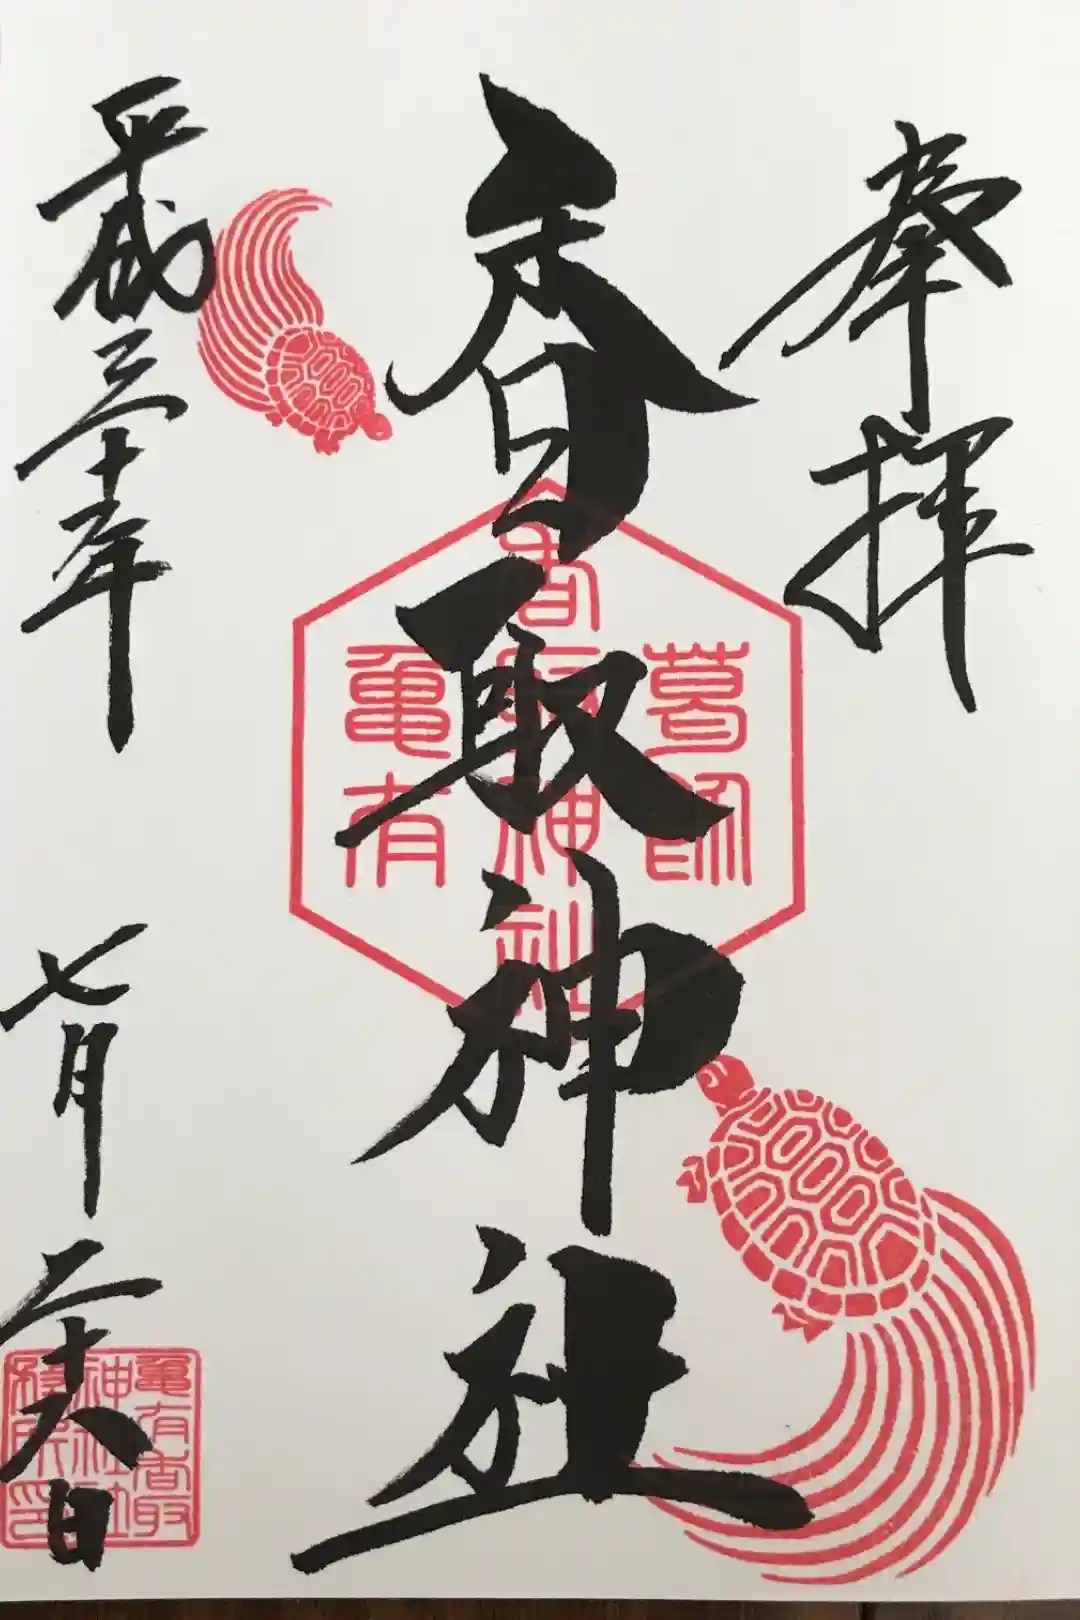 奉拝
香取神社
平成三十年
七月二十八日
葛飾
香取神社
亀有
亀有香取
神社